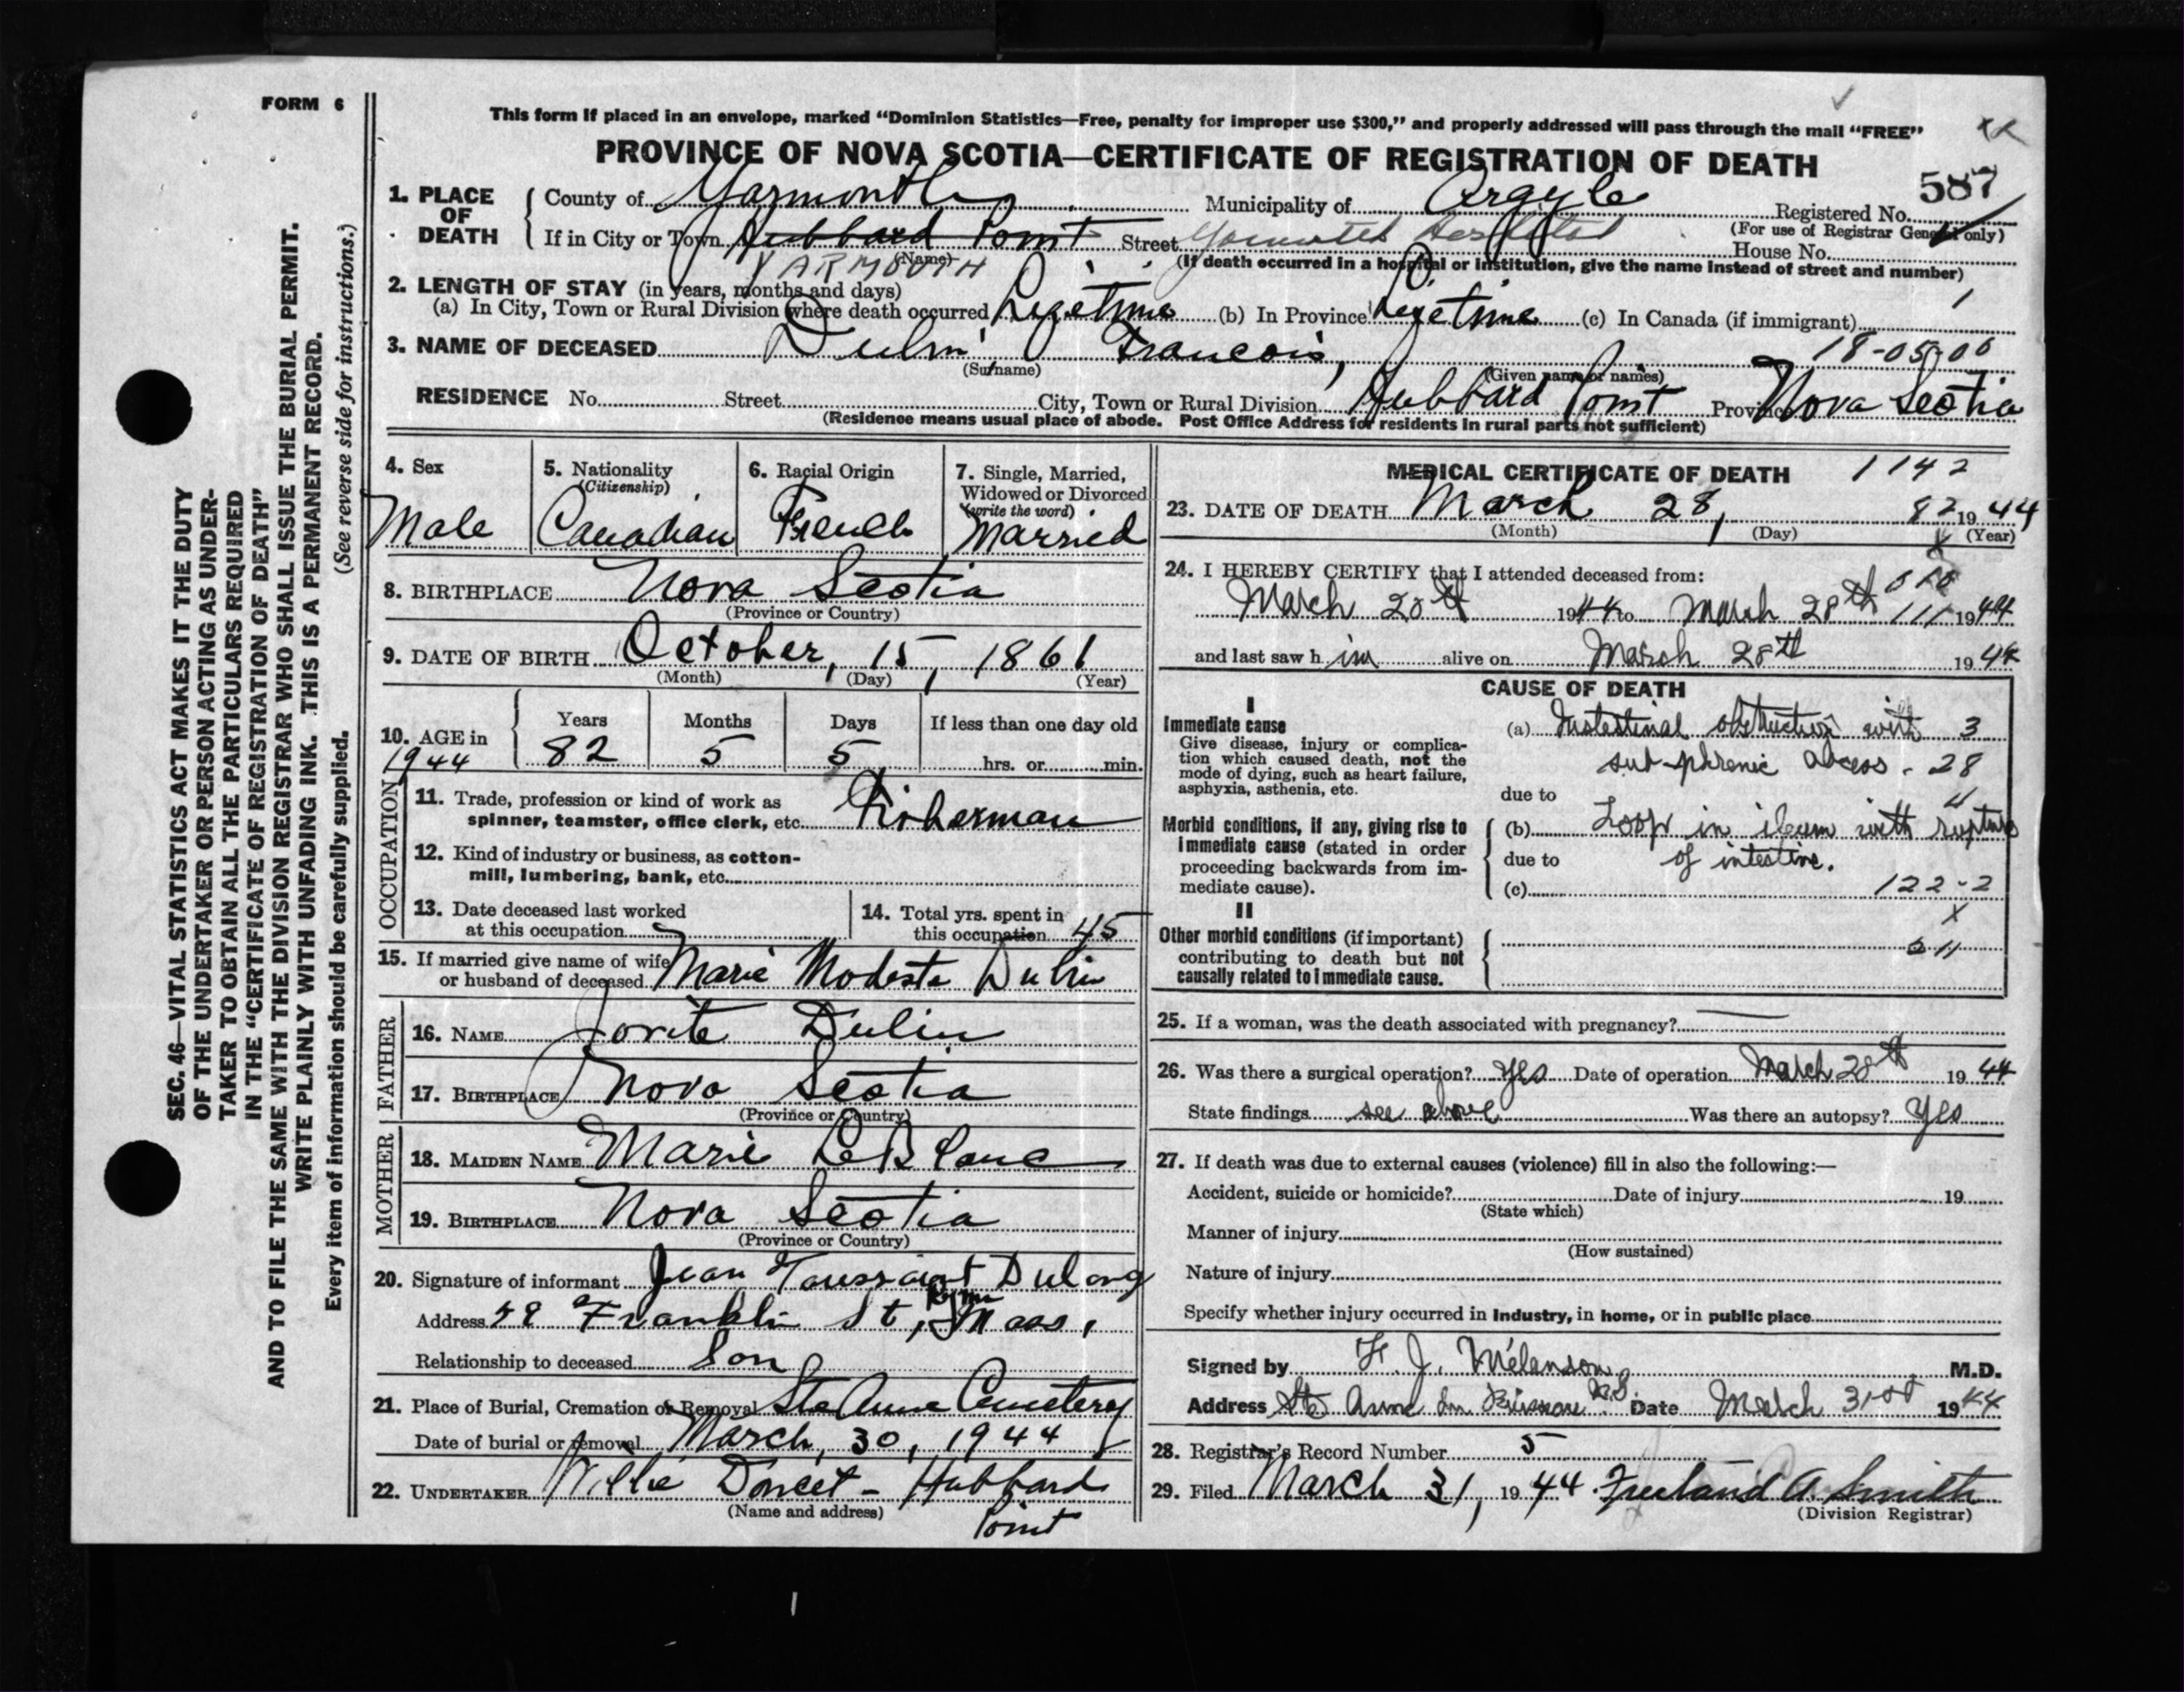 FORM 6
This form if placed in an envelope, marked "Dominion Statistics—Free, penalty for improper use $300," and properly addressed will pass through the mail "FREE"
PROVINCE OF NOVA SCOTIA—CERTIFICATE OF REGISTRATION OF DEATH
587
1. PLACE OF DEATH
County of Yarmouth Municipality of Argyle Registered No.
(For use of Registrar General only)
If in City or Town Hubbard Point Street Yarmouth Hospital House No.
(Name) YARMOUTH (If death occurred in a hospital or institution, give the name instead of street and number)
2. LENGTH OF STAY (in years, months and days)
(a) In City, Town or Rural Division where death occurred Lifetime (b) In Province Lifetime (c) In Canada (if immigrant)
3. NAME OF DECEASED Dulin, Francois, 18-05-00
(Surname) (Given name or names)
RESIDENCE No. Street City, Town or Rural Division Hubbard Point Province Nova Scotia
(Residence means usual place of abode. Post Office Address for residents in rural parts not sufficient)
4. Sex Male
5. Nationality (Citizenship) Canadian
6. Racial Origin French
7. Single, Married, Widowed or Divorced (write the word) Married
8. BIRTHPLACE Nova Scotia
(Province or Country)
9. DATE OF BIRTH October, 15, 1861
(Month) (Day) (Year)
10. AGE in 1944 Years 82 Months 5 Days 5 If less than one day old hrs. or min.
OCCUPATION
11. Trade, profession or kind of work as spinner, teamster, office clerk, etc. Fisherman
12. Kind of industry or business, as cotton-mill, lumbering, bank, etc.
13. Date deceased last worked at this occupation
14. Total yrs. spent in this occupation 45
15. If married give name of wife or husband of deceased Marie Modeste Dulin
FATHER
16. NAME Dulin
17. BIRTHPLACE Nova Scotia
(Province or Country)
MOTHER
18. MAIDEN NAME Marie LeBlanc
19. BIRTHPLACE Nova Scotia
(Province or Country)
20. Signature of informant Jean Toussaint Dulong
Address Franklin St, Lynn Mass,
Relationship to deceased Son
21. Place of Burial, Cremation or Removal Ste Anne Cemetery
Date of burial or removal March, 30, 1944
22. UNDERTAKER Willie Doucet - Hubbard Point
(Name and address)
MEDICAL CERTIFICATE OF DEATH 1142
23. DATE OF DEATH March 28, 82 1944
(Month) (Day) (Year)
24. I HEREBY CERTIFY that I attended deceased from:
March 20th 1944 to March 28th 111 1944
and last saw h im alive on March 28th 1944
CAUSE OF DEATH
I
Immediate cause
Give disease, injury or complication which caused death, not the mode of dying, such as heart failure, asphyxia, asthenia, etc.
(a) Intestinal obstruction with 3
sub-phrenic abcess. 28
due to
Morbid conditions, if any, giving rise to immediate cause (stated in order proceeding backwards from immediate cause).
(b) Loop in ileum with rupture
due to of intestine.
(c) 122-2
II
X
Other morbid conditions (if important) contributing to death but not causally related to immediate cause.
25. If a woman, was the death associated with pregnancy?
26. Was there a surgical operation? yes Date of operation March 28th 1944
State findings see above Was there an autopsy? yes
27. If death was due to external causes (violence) fill in also the following:—
Accident, suicide or homicide? Date of injury 19
(State which)
Manner of injury
(How sustained)
Nature of injury
Specify whether injury occurred in Industry, in home, or in public place
Signed by J. Mélanson M.D.
Address Ste Anne du Ruisseau N.S. Date March 31st 1944
28. Registrar's Record Number 5
29. Filed March 31, 1944 Freeland A. Smith
(Division Registrar)
SEC. 46—VITAL STATISTICS ACT MAKES IT THE DUTY
OF THE UNDERTAKER OR PERSON ACTING AS UNDER-
TAKER TO OBTAIN ALL THE PARTICULARS REQUIRED
IN THE "CERTIFICATE OF REGISTRATION OF DEATH"
AND TO FILE THE SAME WITH THE DIVISION REGISTRAR WHO SHALL ISSUE THE BURIAL PERMIT.
WRITE PLAINLY WITH UNFADING INK. THIS IS A PERMANENT RECORD.
Every item of information should be carefully supplied. (See reverse side for instructions.)